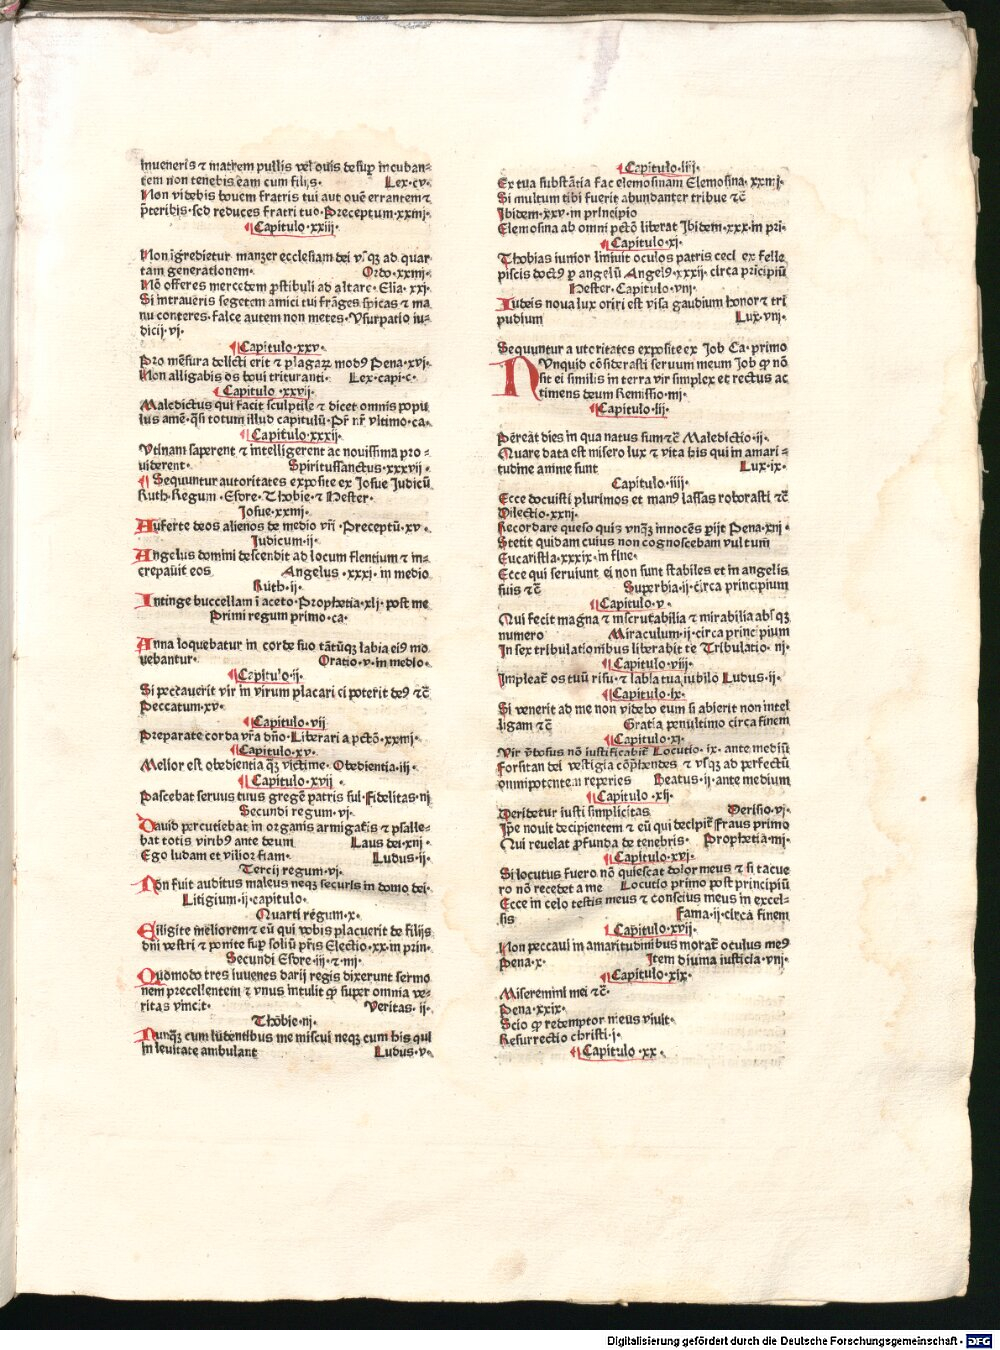 inueneris ⁊ matrem pullis vel ouis desup incuban=
tem non tenebis eam cum filijs. Lex.cv.
Non videbis bouem fratris tui aut ouē errantem ⁊
p̄teribis. sed reduces fratri tuo. Preceptum.xxiiij.
¶Capitulo.xxiij.
Non īgredietur manzer ecclesiam dei vsq̄ ad quar
tam generationem. Ordo.xxiiij.
Nō offeres mercedem p̄stibuli ad altare. Elia.xxj.
Si intraueris segetem amici tui frāges spicas ⁊ ma
nu conteres. falce autem non metes. Vsurpatio iu=
dicij vj.
¶Capitulo.xxv.
Pro mēsura delicti erit ⁊ plagaꝝ modꝰ Pena.xvj.
Non alligabis os boui trituranti. Lex.capi.c.
¶Capitulo.xxvij.
Maledictus qui facit sculptile ⁊ dicet omnis popu
lus amē. q̄si totum illud capitulū. Pr̄ nr̄ vltimo.ca.
¶Capitulo.xxxij.
Vtinam saperent ⁊ intelligerent ac nouissima pro=
uiderent. Spiritussanctus.xxxvij.
¶Sequuntur autoritates exposite ex Josue Judicū
Ruth.Regum.Esdre.Thobie.⁊ Hester.
Josue.xxiiij.
Auferte deos alienos de medio vr̄i. Preceptū.xv.
Judicum.ij.
Angelus domini descendit ad locum flentium ⁊ in=
crepauit eos Angelus.xxxj.in medio
Ruth.ij.
Intinge buccellam ī aceto. Prophetia.xlj.post me
Primi regum primo.ca.
Anna loquebatur in corde suo tātūqꝫ labia eiꝰ mo
uebantur. Oratio.v.in medio.
¶Capitulo.ij.
Si peccauerit vir in virum placari ei poterit deꝰ ⁊c̄
Peccatum.xv.
¶Capitulo.vij
Preparate corda vr̄a dn̄o. Liberari a pctō.xxiiij.
¶Capitulo.xv.
Melior est obedientia q̄ꝫ victime. Obedientia.iij.
¶Capitulo.xvij.
Pascebat seruus tuus gregē patris sui. Fidelitas.nj
Secundi regum.vj.
Dauid percutiebat in organis armigatis ⁊ psalle=
bat totis viribꝰ ante deum Laus dei.xnj.
Ego ludam et vilior fiam. Ludus.ij.
Tercij regum.vj.
Non fuit auditus maleus neqꝫ securis in domo dei.
Litigium.ij.capitulo.
Quarti regum.x.
Eiligite meliorem ⁊ eū qui vobis placuerit de filijs
dn̄i vestri ⁊ ponite sup soliū p̄ris Electio.xx.in prin.
Secundi Esdre.iij.⁊ iiij.
Quomodo tres iuuenes darij regis dixerunt sermo
nem precellentem ⁊ vnus intulit ꝙ super omnia ve=
ritas vincit. Veritas.ij.
Thobie.nj.
Nunq̄ꝫ cum ludentibus me miscui neqꝫ cum his qui
in leuitate ambulant Ludus.v.
¶Capitulo.iiij.
Ex tua substātia fac elemosinam Elemosina.xxiiij.
Si multum tibi fuerit abundanter tribue ⁊c̄
Ibidem.xxv.in principio
Elemosina ab omni pctō liberat Ibidem.xxx.in pri.
¶Capitulo.xj.
Thobias iunior liniuit oculos patris ceci ex felle
piscis doctꝰ p angelū Angelꝰ.xxxij.circa pricipiū
Hester.Capitulo.vnj.
Iudeis noua lux oriri est visa gaudium honor ⁊ tri
pudium Lux.vnj.
Sequuntur autoritates exposite ex Job Ca.primo
NVnquid cōsiderasti seruum meum Job ꝙ nō
sit ei similis in terra vir simplex et rectus ac
timens deum Remissio.iiij.
¶Capitulo.iij.
Pereat dies in qua natus sum ⁊c̄ Maledictio.ij.
Quare data est misero lux ⁊ vita his qui in amari=
tudine anime sunt Lux.ix.
Capitulo.iiij.
Ecce docuisti plurimos et manꝰ lassas roborasti ⁊c̄
Dilectio.xxnj.
Recordare queso quis vnq̄ꝫ innocēs pijt Pena.xnj.
Stetit quidam cuius non cognoscebam vultum
Eucaristia.xxxix.in fine.
Ecce qui seruiunt ei non sunt stabiles et in angelis
suis ⁊c̄ Superbia.ij.circa principium
¶Capitulo.v.
Qui fecit magna ⁊ inscrutabilia ⁊ mirabilia absqꝫ
numero Miraculum.ij.circa principium
In sex tribulationibus liberabit te Tribulatio.nj.
¶Capitulo.viij.
Impleat̄ os tuū risu.⁊ labia tua iubilo Ludus.ij.
¶Capitulo.ix.
Si venerit ad me non videbo eum si abierit non intel
ligam ⁊c̄ Gratia penultimo circa finem
¶Capitulo.xj.
Vir v̄bosus nō iustificabit̄ Locutio.ix.ante mediū
Forsitan dei vestigia cōprehendes ⁊ vsqꝫ ad perfectū
omnipotentem reperies Beatus.ij.ante medium
¶Capitulo.xij.
Deridetur iusti simplicitas Derisio.vj.
Ipe nouit decipientem ⁊ eū qui decipit̄ Fraus primo
Qui reuelat p̄funda de tenebris. Prophetia.iiij.
¶Capitulo.xvj.
Si locutus fuero nō quiescat dolor meus ⁊ si tacue
ro nō recedet a me Locutio primo post principiū
Ecce in celo testis meus ⁊ conscius meus in excel=
sis Fama.ij.circa finem
¶Capitulo.xvij.
Non peccaui in amaritudinibus morat̄ oculus meꝰ
Pena.x. Item diuina iusticia.vnj.
¶Capitulo.xix.
Miseremini mei ⁊c̄.
Pena.xxix.
Scio ꝙ redemptor meus viuit.
Resurrectio christi.j.
¶Capitulo.xx.
Digitalisierung gefördert durch die Deutsche Forschungsgemeinschaft - DFG